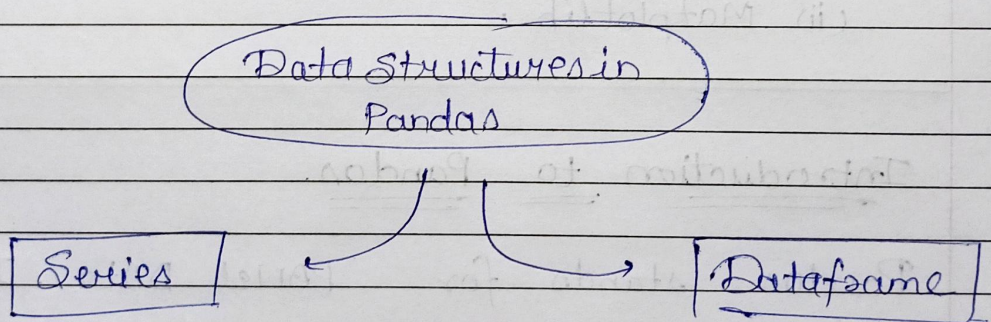 Data Structures in
Pandas
Series
Dataframe